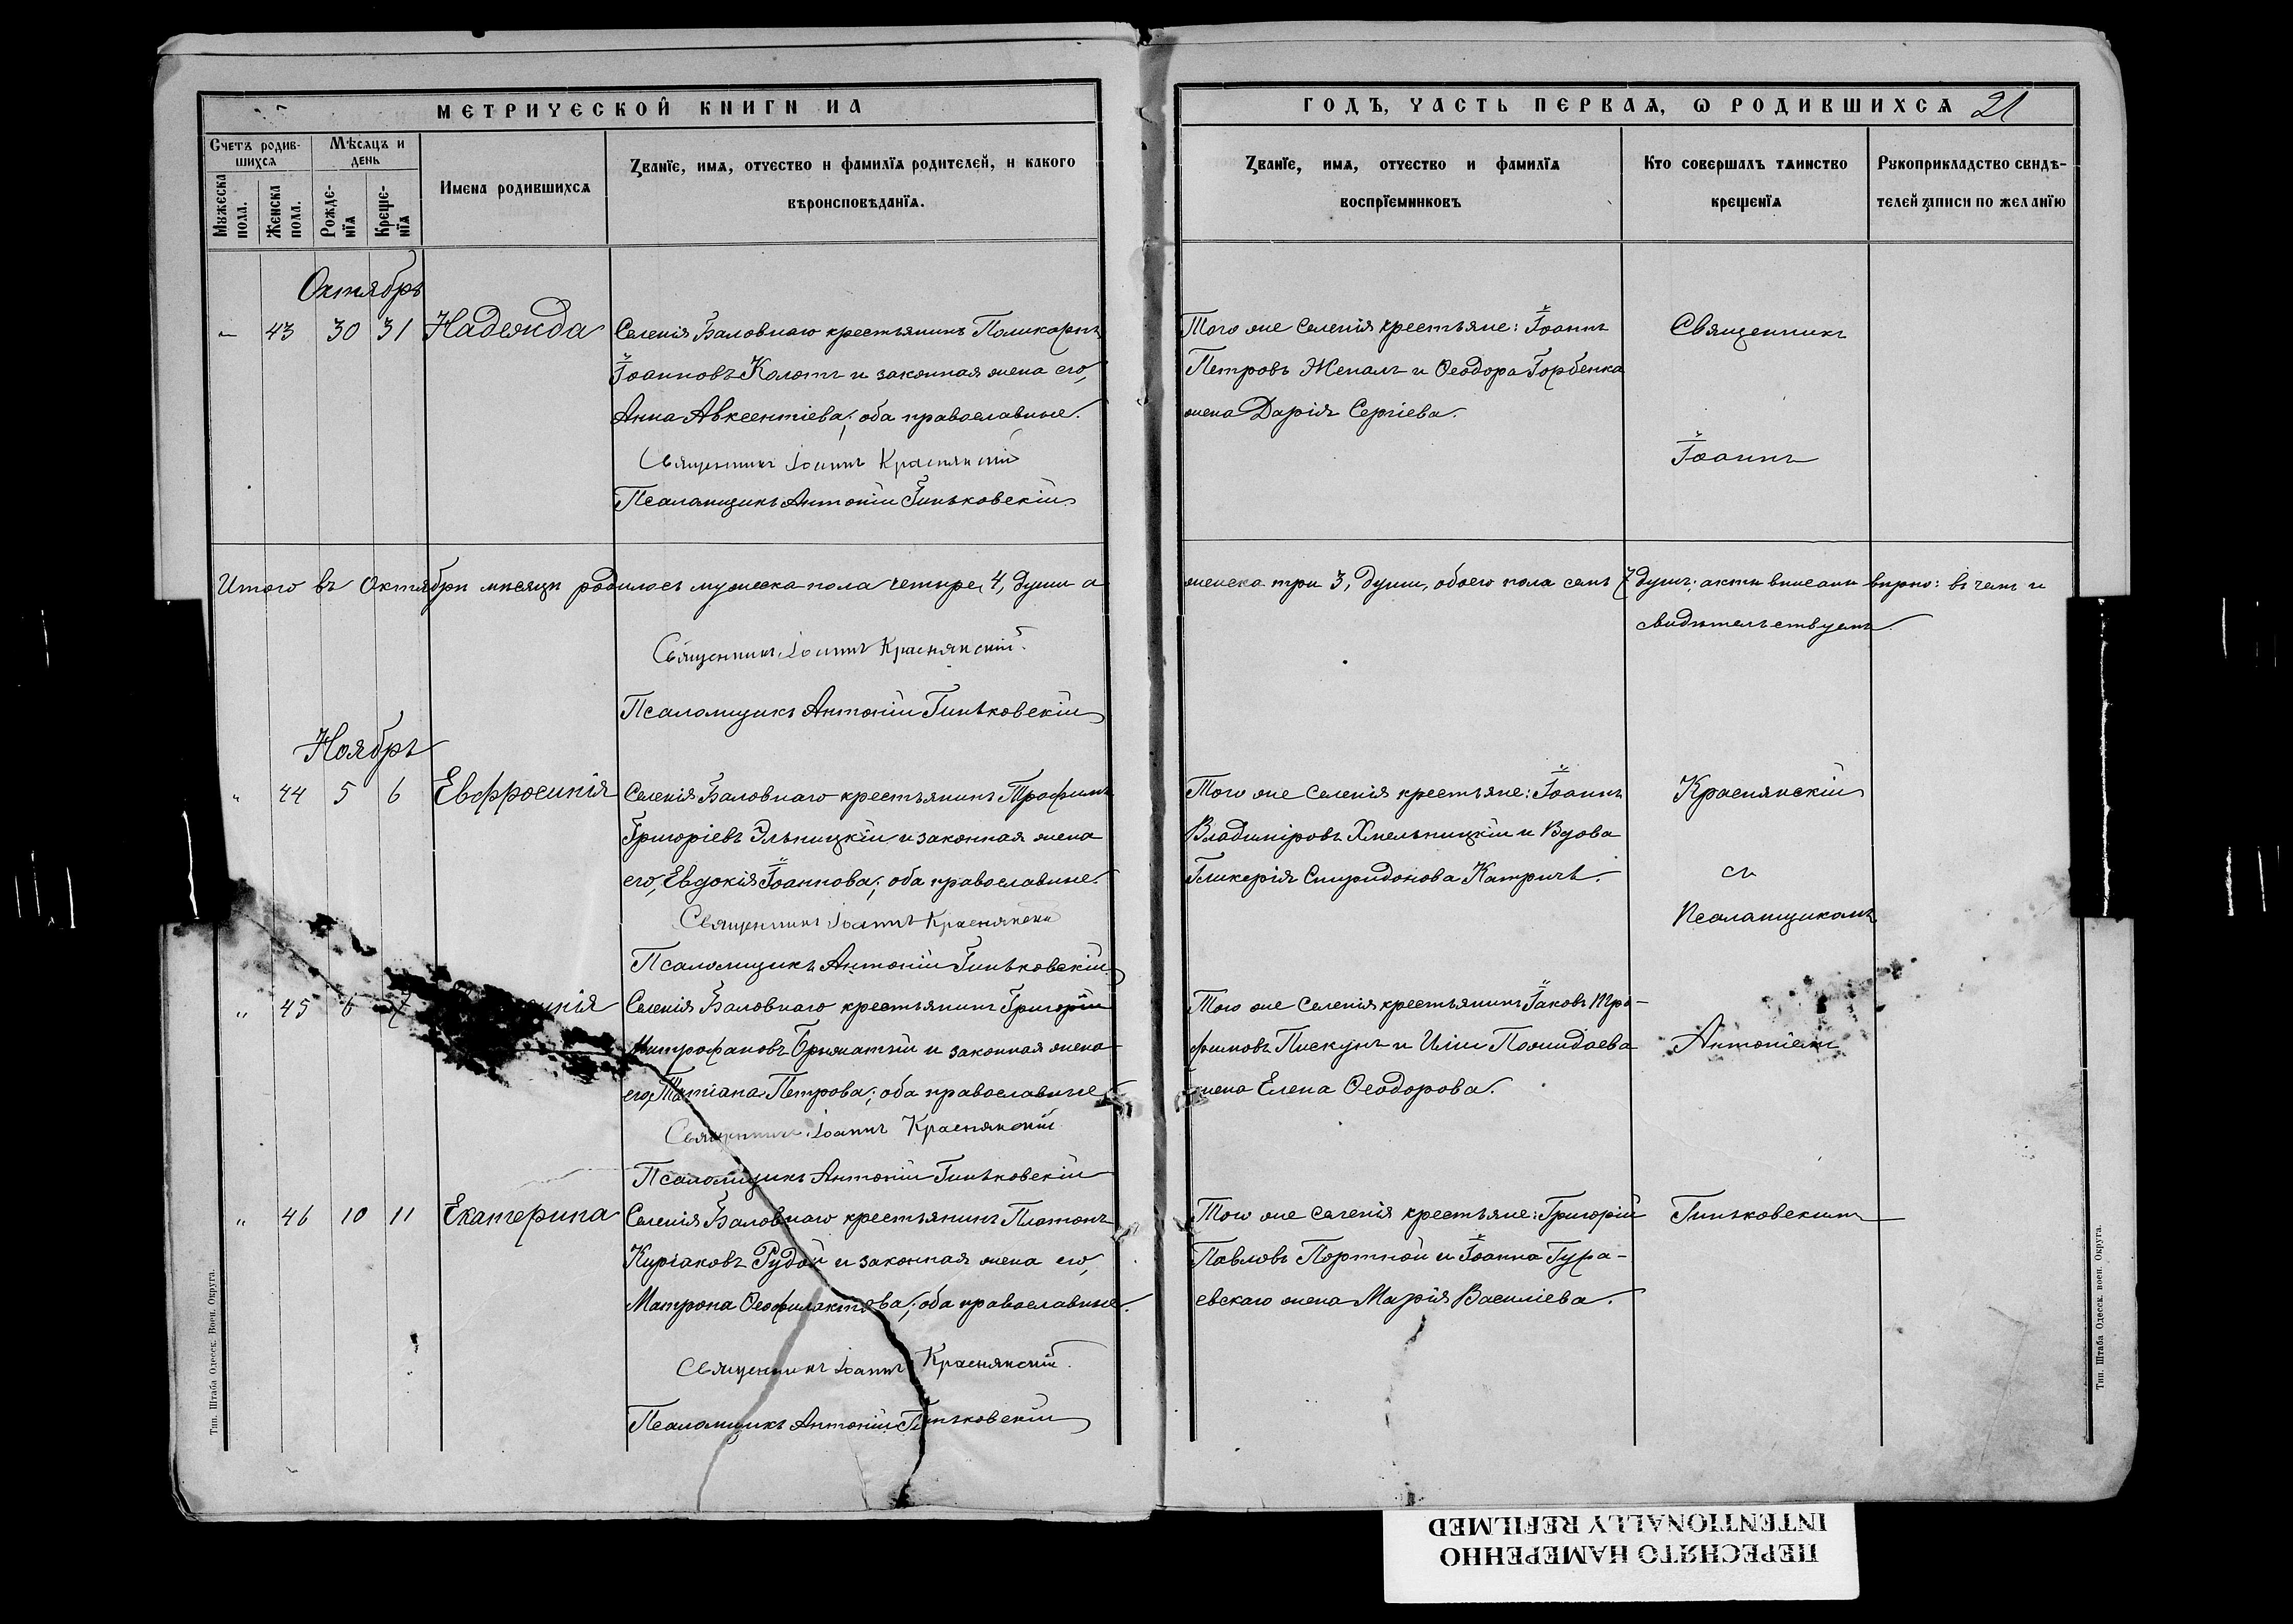 МЕТРИЧЕСКОЙ КНИГИ НА
Счетъ родив-
шихся
Мѣсяцъ и
день
Мужеска
пола.
Женска
пола.
Рожде-
нїя
Креще-
нїя
Имена родившихся
Званїе, имя, отчество и фамилїя родителей, и какого
вѣроисповѣданїя.
Октябрь
43 30 31 Надежда
Селенія Баловнаго крестьянинъ Поликарпъ
Іоанновъ Колотъ и законная жена его,
Анна Авксентіева; оба православные.
Священникъ Іоаннъ Краснянскій
Псаломщикъ Антоній Гиньковскій
Итого въ Октябрѣ мѣсяцѣ родилось мужеска пола четыре, 4, души а
Священникъ Іоаннъ Краснянскій.
Псаломщикъ Антоній Гиньковскій
Ноябрь
" 44 5 6 Евфросинія
Селенія Баловнаго крестьянинъ Трофимъ
Григоріевъ Эльницкій и законная жена
его, Евдокія Іоаннова; оба православные.
Священникъ Іоаннъ Краснянскій
Псаломщикъ Антоній Гиньковскій
" 45 6 инія
Селенія Баловнаго крестьянинъ Григорій
Митрофановъ и законная жена
его, Татіана Петрова; оба православные
Священникъ Іоаннъ Краснянскій
Псаломщикъ Антоній Гиньковскій
" 46 10 11 Екатерина
Селенія Баловнаго крестьянинъ Платонъ
Киріаковъ Рудой и законная жена его,
Матрона Ѳеофилактова; оба православные.
Священникъ Іоаннъ Краснянскій.
Псаломщикъ Антоній Гиньковскій
Тип. Штаба Одесск. Воен. Округа.
ГОДЪ, ЧАСТЬ ПЕРВАЯ, Ѡ РОДИВШИХСЯ 21
Званїе, имя, отчество и фамилїя
воспрїемниковъ
Кто совершалъ таинство
крещенїя
Рукоприкладство свидѣ-
телей записи по желанїю
Того же селенія крестьяне: Іоаннъ
Петровъ Жепалъ и Ѳеодора Горбенка
жена Дарія Сергіева.
Священникъ
Іоаннъ
женска три 3, души, обоего пола семь 7 душъ; акты вписаны вѣрно: въ чемъ и
свидѣтельствуемъ.
Того же селенія крестьяне: Іоаннъ
Владиміровъ Хмельницкій и Вдова
Гликерія Спиридонова Катричъ.
Краснянскій
съ
Псаломщикомъ
Того же селенія крестьянинъ Іаковъ Тро-
фимовъ Пискунъ и Иліи
жена Елена Ѳеодорова.
Антоніемъ
Того же селенія крестьяне: Григорій
Павловъ Портной и Іоанна Гура-
евскаго жена Марія Василіева.
Гиньковскимъ
Тип. Штаба Одесск. воен. Округа.
ПЕРЕСНЯТО НАМЕРЕННО
INTENTIONALLY REFILMED